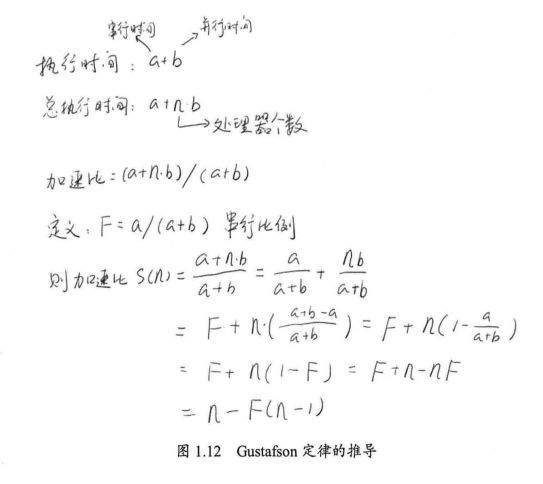 串行时间 并行时间
执行时间：a+b
总执行时间：a+n·b
处理器个数
加速比=(a+n·b)/(a+b)
定义：F=a/(a+b) 串行比例
则加速比 S(n)= (a+n·b)/(a+b) = a/(a+b) + nb/(a+b)
= F+n·((a+b-a)/(a+b)) = F+n(1-a/(a+b))
= F+n(1-F) = F+n-nF
= n-F(n-1)
图 1.12 Gustafson 定律的推导